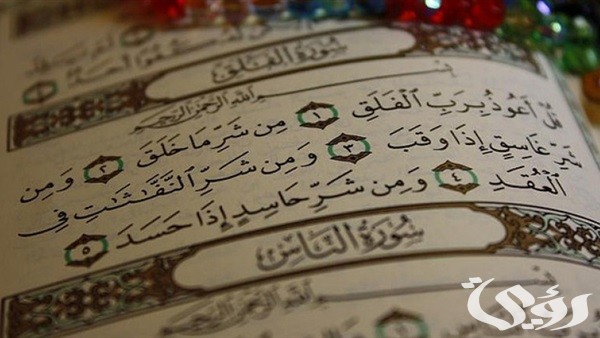 كُفُوًا أَحَدٌ ٤
سُورَةُ الفَلَقِ
بِسْمِ اللَّهِ الرَّحْمَٰنِ الرَّحِيمِ
قُلْ أَعُوذُ بِرَبِّ ٱلْفَلَقِ ١ مِن شَرِّ مَا خَلَقَ ٢ وَمِن
شَرِّ غَاسِقٍ إِذَا وَقَبَ ٣ وَمِن شَرِّ ٱلنَّفَّٰثَٰتِ فِى
ٱلْعُقَدِ ٤ وَمِن شَرِّ حَاسِدٍ إِذَا حَسَدَ ٥
سُورَةُ النَّاسِ
بِسْمِ اللَّهِ الرَّحْمَٰنِ الرَّحِيمِ
رؤية